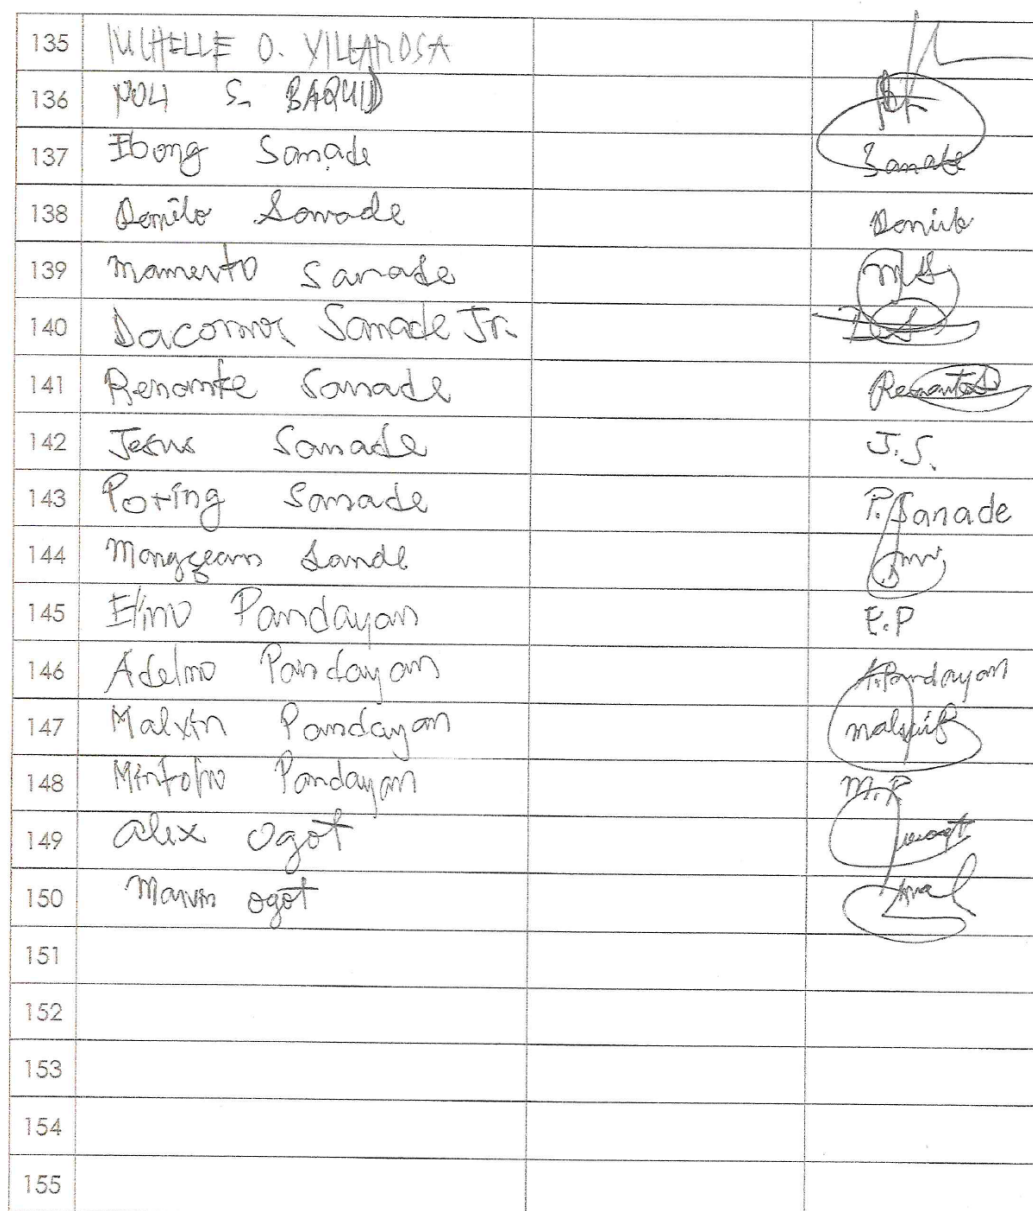 135 MICHELLE O. VILLAROSA
136 NOLI S. BAQUID
137 Ibong Sanade Sanade
138 Danilo Sanade Danilo
139 Mamerto Sanade M.S.
140 Sanade Jr. D.S.
141 Renante Sanade Renante
142 Jesus Sanade J.S.
143 Poring Sanade P. Sanade
144 Sande
145 Elino Pandayan E.P
146 Adelmo Pandayan A. Pandayan
147 Malvin Pandayan
148 Pandayan M.P
149 alex Ogot
150 Marvin ogot
151
152
153
154
155